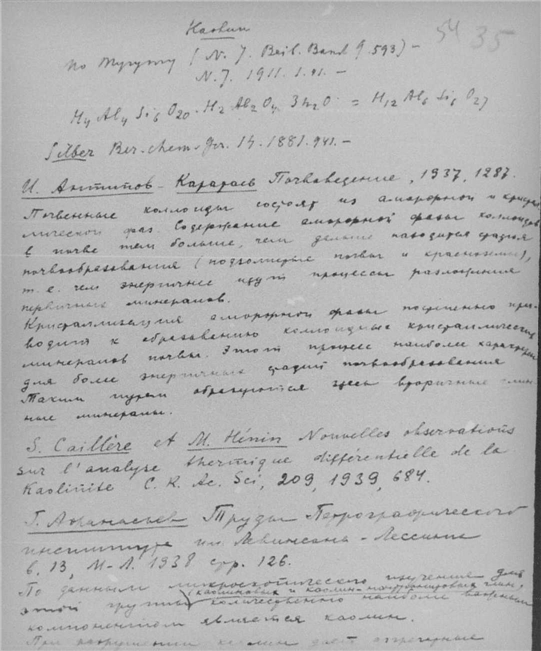 54 35
по ( N. J. Beil. Band 9.593) -
N. J. 1911. I. 91. -
H4 Al4 Si6 O20 · H2 Al2 O4 3H2O = H12 Al6 Si6 O27
Silber Ber. chem. Ges. 14. 1881. 941. -
И. Антипов-Каратаев Почвоведение, 1937, 1287.
Почвенные коллоиды состоят из аморфной и кристал
лической фаз. Содержание аморфной фазы коллоидов
в почве тем больше, чем дальше находится стадия
почвообразования (подзолистые почвы и красноземы),
т.е. чем энергичнее идут процессы разложения
первичных минералов.
Кристаллизация аморфной фазы постепенно при-
водит к образованию коллоидных кристаллических
минералов почвы. Этот процесс наиболее характерен
для более энергичных стадий почвообразования
Таким путем образуются здесь вторичные глин-
ные минералы.
S. Caillère et M. Hénin Nouvelles observations
sur l'analyse thermique différentielle de la
Kaolinite C. R. Ac. Sci, 209, 1939, 684.
Г. Афанасьев Труды Петрографического
института им. Левинсона-Лессинга
в. 13, М-Л. 1938 стр. 126.
По данным микроскопического изучения для
этой группы (каолиновых и каолин- глин,
количественно наиболее
компонентом является каолин.
При каолин дает агрегатные